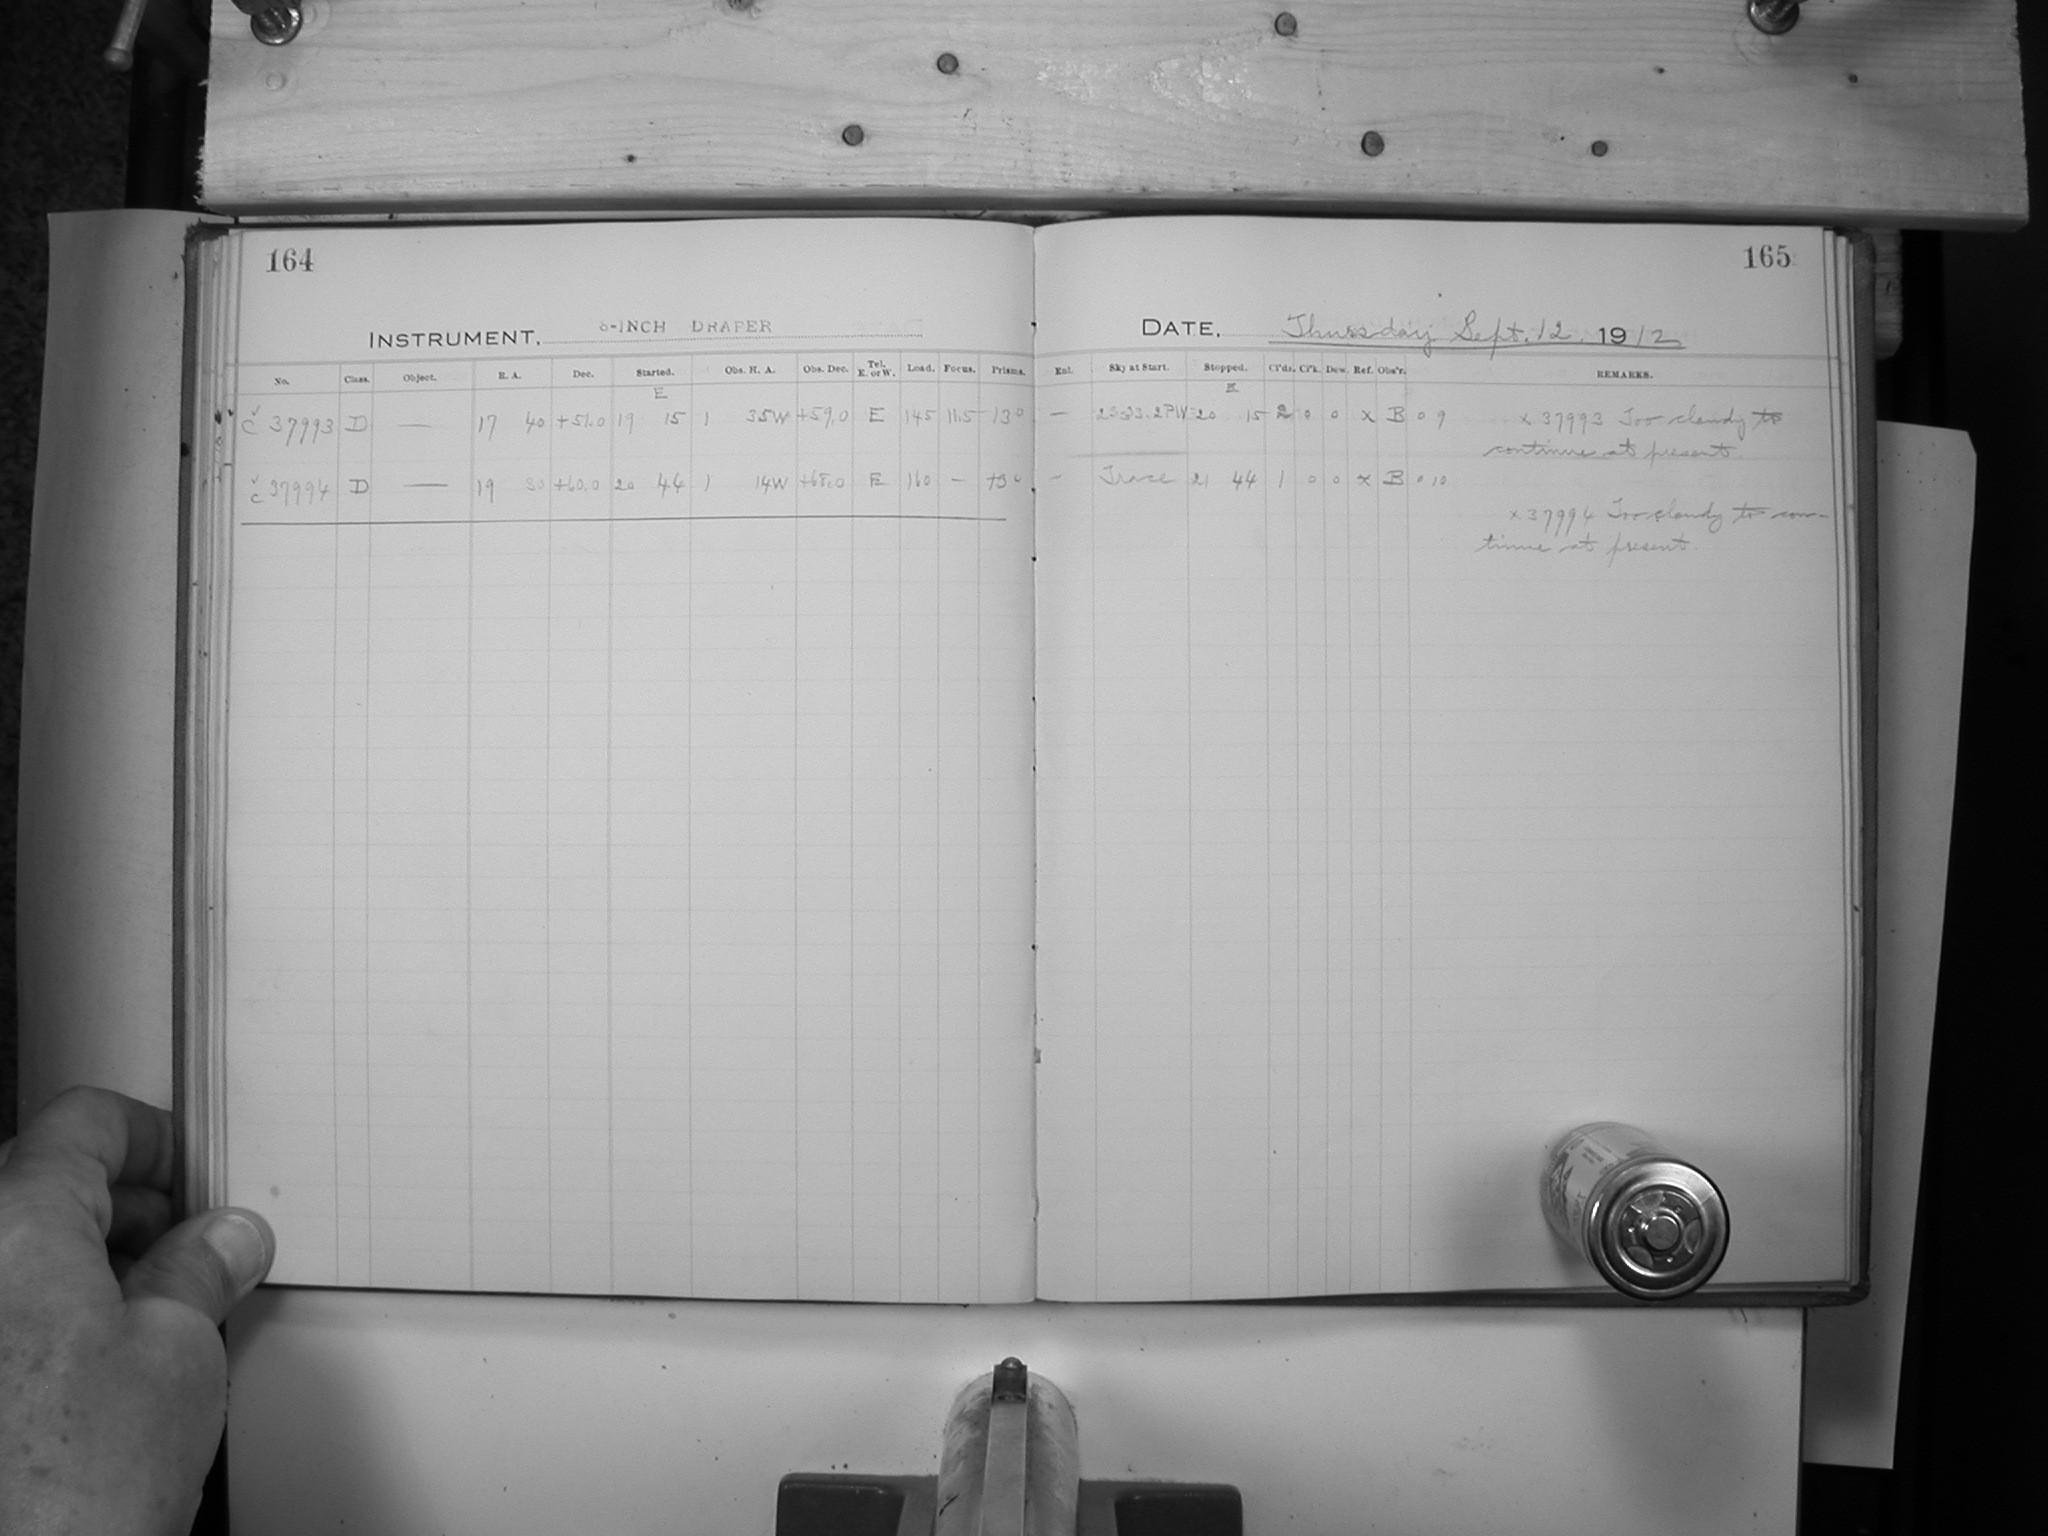 164
165
INSTRUMENT. 8-INCH DRAPER
DATE. Thursday Sept. 12. 1912
No. Class. Object. R. A. Dec. Started. Obs. H. A. Obs. Dec. Tel. E. or W. Load. Focus. Prisms. Enl. Sky at Start. Stopped. Cl'ds. Cl'k. Dew. Ref. Obs'r. REMARKS.
E E
C 37993 D — 17 40 +51.0 19 15 1 35W +59.0 E 145 11.5 13° — 20 15 2 0 0 x B 0 9 x 37993 Too cloudy to
continue at present
C 37994 D — 19 30 +60.0 20 44 1 14W +68.0 E 160 — — Trace 21 44 1 0 0 x B 0 10
x 37994 Too cloudy to con-
tinue at present.